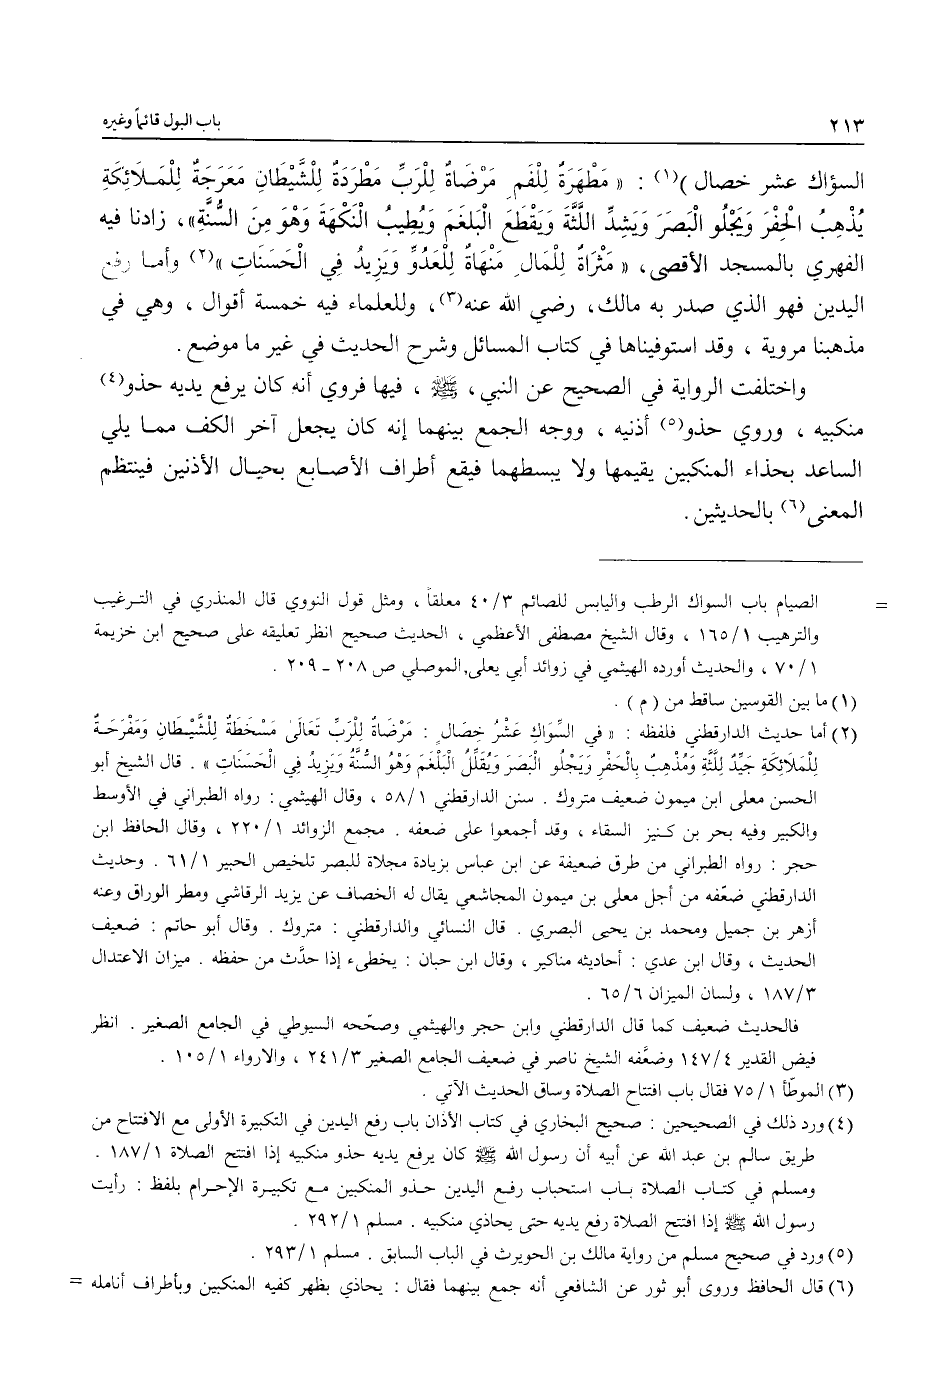 ٢١٣
باب البول قائماً وغيره
السؤاك عشر خصال )(١) : « مَطْهَرَةٌ لِلْفَمِ مَرْضَاةٌ لِلرَبِّ مَطْرَدَةٌ لِلْشَّيْطَانِ مَعَرَجَةٌ لِلْمَلَائِكَةِ
يُذْهِبُ الْحِفْرَ وَيَجْلُو الْبَصَرَ وَيَشِدِّ اللَّثَّةَ وَيَقْطَعَ الْبَلغَمَ وَيُطِيبُ الْنَكْهَةَ وَهْوَ مِنَ السُّنَّةِ»، زادنا فيه
الفهري بالمسجد الأقصى، « مَثْرَاةٌ لِلْمَالِ مَنْهَاةٌ لِلْعَدُوِّ وَيَزِيدُ فِي الْحَسَنَاتِ »(٢) وأما رفع
اليدين فهو الذي صدر به مالك، رضي الله عنه(٣)، وللعلماء فيه خمسة أقوال ، وهي في
مذهبنا مروية ، وقد استوفيناها في كتاب المسائل وشرح الحديث في غير ما موضع .
واختلفت الرواية في الصحيح عن النبي، ﷺ ، فيها فروي أنه كان يرفع يديه حذو(٤)
منكبيه ، وروي حذو(٥) أذنيه ، ووجه الجمع بينهما إنه كان يجعل آخر الكف مما يلي
الساعد بحذاء المنكبين يقيمها ولا يبسطهما فيقع أطراف الأصابع بحيال الأذنين فينتظم
المعنى(٦) بالحديثين .
= الصيام باب السواك الرطب واليابس للصائم ٤٠/٣ معلقاً ، ومثل قول النووي قال المنذري في الترغيب
والترهيب ١٦٥/١ ، وقال الشيخ مصطفى الأعظمي ، الحديث صحيح انظر تعليقه على صحيح ابن خزيمة
٧٠/١ ، والحديث أورده الهيثمي في زوائد أبي يعلى الموصلي ص ٢٠٨ - ٢٠٩ .
(١) ما بين القوسين ساقط من ( م ) .
(٢) أما حديث الدارقطني فلفظه : « في السِّوَاكِ عَشْرُ خِصَالٍ : مَرْضَاةٌ لِلْرَبِّ تَعَالَىٰ مَسْخَطَةٌ لِلْشَّيْطَانِ وَمَفْرَحَةٌ
لِلْمَلَائِكَةِ جَيِّدٌ لِلَّثَّةِ وَمُذْهِبٌ بِالْحَفْرِ وَيَجْلُو الْبَصَرَ وَيُقَلِّلُ الْبَلْغَمَ وَهْوُ السُّنَّةُ وَيَزِيدُ فِي الْحَسَنَاتِ » . قال الشيخ أبو
الحسن معلى ابن ميمون ضعيف متروك . سنن الدارقطني ٥٨/١ ، وقال الهيثمي : رواه الطبراني في الأوسط
والكبير وفيه بحر بن كنيز السقاء ، وقد أجمعوا على ضعفه . مجمع الزوائد ٢٢٠/١ ، وقال الحافظ ابن
حجر : رواه الطبراني من طرق ضعيفة عن ابن عباس بزيادة مجلاة للبصر تلخيص الحبير ٦١/١ . وحديث
الدارقطني ضعّفه من أجل معلى بن ميمون المجاشعي يقال له الخصاف عن يزيد الرقاشي ومطر الوراق وعنه
أزهر بن جميل ومحمد بن يحيى البصري . قال النسائي والدارقطني : متروك . وقال أبو حاتم : ضعيف
الحديث ، وقال ابن عدي : أحاديثه مناكير ، وقال ابن حبان : يخطىء إذا حدَّث من حفظه . ميزان الاعتدال
١٨٧/٣ ، ولسان الميزان ٦٥/٦ .
فالحديث ضعيف كما قال الدارقطني وابن حجر والهيثمي وصحّحه السيوطي في الجامع الصغير . انظر
فيض القدير ١٤٧/٤ وضعَّفه الشيخ ناصر في ضعيف الجامع الصغير ٢٤١/٣ ، والارواء ١٠٥/١ .
(٣) الموطّأ ٧٥/١ فقال باب افتتاح الصلاة وساق الحديث الآتي .
(٤) ورد ذلك في الصحيحين : صحيح البخاري في كتاب الأذان باب رفع اليدين في التكبيرة الأولى مع الافتتاح من
طريق سالم بن عبد الله عن أبيه أن رسول الله ﷺ كان يرفع يديه حذو منكبيه إذا افتتح الصلاة ١٨٧/١ .
ومسلم في كتاب الصلاة باب استحباب رفع اليدين حذو المنكبين مع تكبيرة الإحرام بلفظ : رأيت
رسول الله ﷺ إذا افتتح الصلاة رفع يديه حتى يحاذي منكبيه . مسلم ٢٩٢/١ .
(٥) ورد في صحيح مسلم من رواية مالك بن الحويرث في الباب السابق . مسلم ٢٩٣/١ .
(٦) قال الحافظ وروى أبو ثور عن الشافعي أنه جمع بينهما فقال : يحاذي بظهر كفيه المنكبين وبأطراف أنامله =